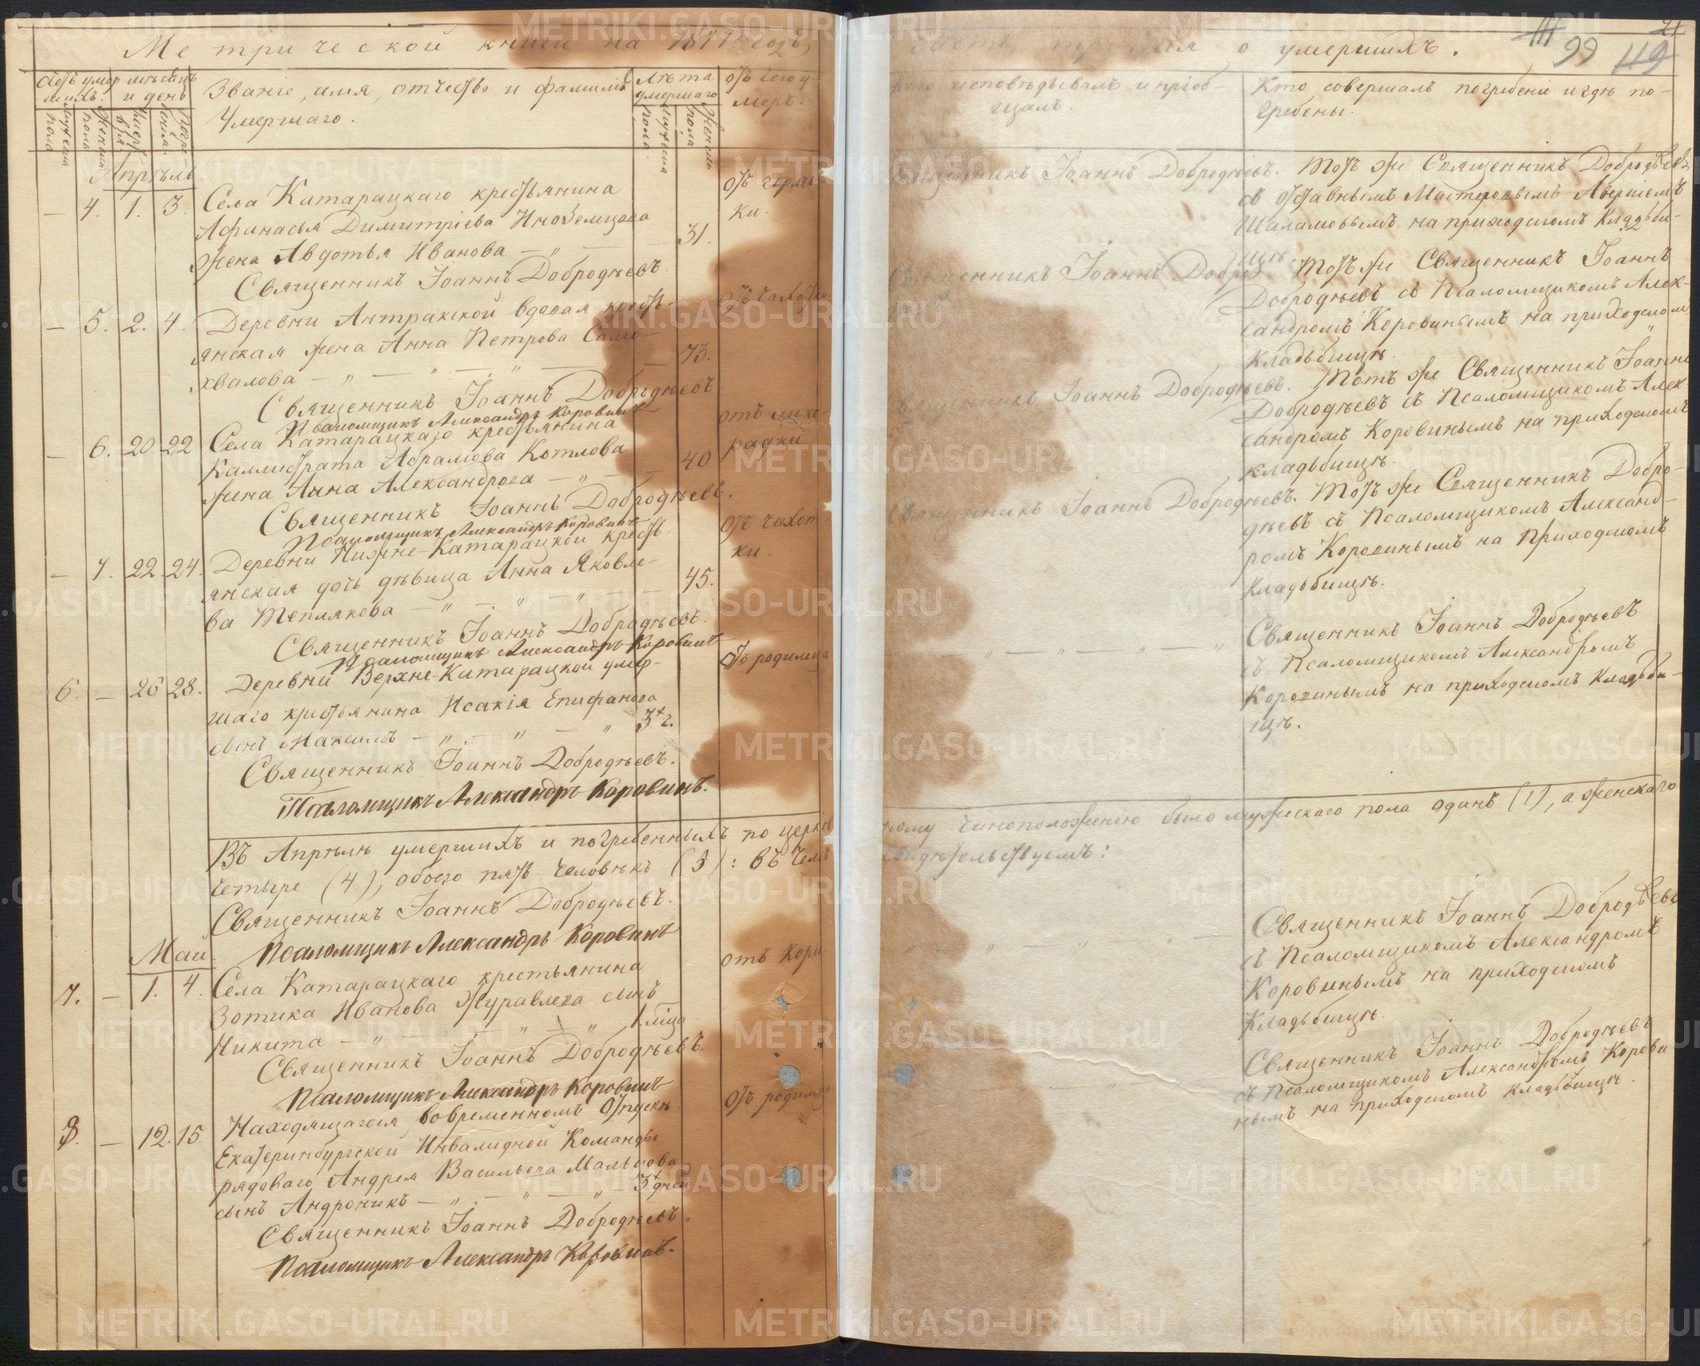 Метрической книги на 1877 годъ,
Счетъ умер шихъ.
мѣсяцъ и день
Званіе, имя, отчество и фамилія
Умершаго.
Лѣта умершаго
отъ чего у-
меръ.
мужеска пола
женска пола
мужеска пола
женска пола
Апрѣль.
— 4. 1. 3. Села Катарацкаго крестьянина
отъ горяч-
ки.
Афанасья Димитріева Иноземцова
жена Авдотья Иванова — „ — 31.
Священникъ Іоаннъ Добродѣевъ.
— 5. 2. 4. Деревни Антракской вдовая кресть-
отъ чахотки
янская жена Анна Петрова Само-
хвалова — „ — „ — „ — 73.
Священникъ Іоаннъ Добродѣевъ
Псаломщикъ Александръ Коровинъ
— 6. 20 22 Села Катарацкаго крестьянина
отъ лихо-
радки
Каллистрата Абрамова Котлова
жена Анна Александрова — „ — 40
Священникъ Іоаннъ Добродѣевъ.
Псаломщикъ Александръ Коровинъ
— 7. 22 24. Деревни Нижне-Катарацкой кресть-
отъ чахот-
ки.
янская дочь дѣвица Анна Яковле-
ва Теплякова — „ — „ — „ — 45.
Священникъ Іоаннъ Добродѣевъ.
Псаломщикъ Александръ Коровинъ
6. — 26 28. Деревни Верхне-Катарацкой умер-
отъ родимца
шаго крестьянина Исакія Епифанова
сынъ Максимъ — „ — „ — „ 3 г.
Священникъ Іоаннъ Добродѣевъ.
Псаломщикъ Александръ Коровинъ.
Въ Апрѣлѣ умершихъ и погребенныхъ по церков
четыре (4), обоего пять человѣкъ (5): въ чемъ
Священникъ Іоаннъ Добродѣевъ.
Псаломщикъ Александръ Коровинъ
Май.
7. — 1. 4. Села Катарацкаго крестьянина
отъ кори
Зотика Иванова Журавлева сынъ
Никита — „ — „ — „ 1 мѣсц
Священникъ Іоаннъ Добродѣевъ
Псаломщикъ Александръ Коровинъ
8. — 12. 15 Находящагося во временномъ отпускѣ
отъ родимца
Екатеринбургской Инвалидной Команды
рядоваго Андрея Васильева Мальцова
сынъ Андроникъ — „ — „ — „ — 3 дней
Священникъ Іоаннъ Добродѣевъ.
Псаломщикъ Александръ Коровинъ.
часть третья о умершихъ.
99
21
Кто исповѣдывалъ и пріоб-
щалъ.
Кто совершалъ погребеніе и гдѣ по-
гребены.
Священникъ Іоаннъ Добродѣевъ.
Тотъ же Священникъ Добродѣевъ
съ отставнымъ Мастеровымъ
Шаламовымъ на приходскомъ Кладби-
щѣ.
Священникъ Іоаннъ Доброд
Тотъ же Священникъ Іоаннъ
Добродѣевъ съ Псаломщикомъ Алек-
сандромъ Коровинымъ на приходскомъ
Кладьбищѣ.
Священникъ Іоаннъ Добродѣевъ.
Тотъ же Священникъ Іоаннъ
Добродѣевъ съ Псаломщикомъ Алек
сандромъ Коровинымъ на приходскомъ
кладьбищѣ.
Священникъ Іоаннъ Добродѣевъ.
Тотъ же Священникъ Добро-
дѣевъ съ Псаломщикомъ Александ-
ромъ Коровинымъ на Приходскомъ
Кладьбищѣ.
Священникъ Іоаннъ Добродѣевъ
съ Псаломщикомъ Александромъ
Коровинымъ на приходскомъ Кладьби-
щѣ.
ному чиноположенію было мужескаго пола одинъ (1), а женскаго
свидѣтельствуемъ:
Священникъ Іоаннъ Добродѣевъ
съ Псаломщикомъ Александромъ
Коровинымъ на приходскомъ
Кладьбищѣ.
Священникъ Іоаннъ Добродѣевъ
съ Псаломщикомъ Александромъ Корови
нымъ на приходскомъ кладьбищѣ.
METRIKI.GASO-URAL.RU